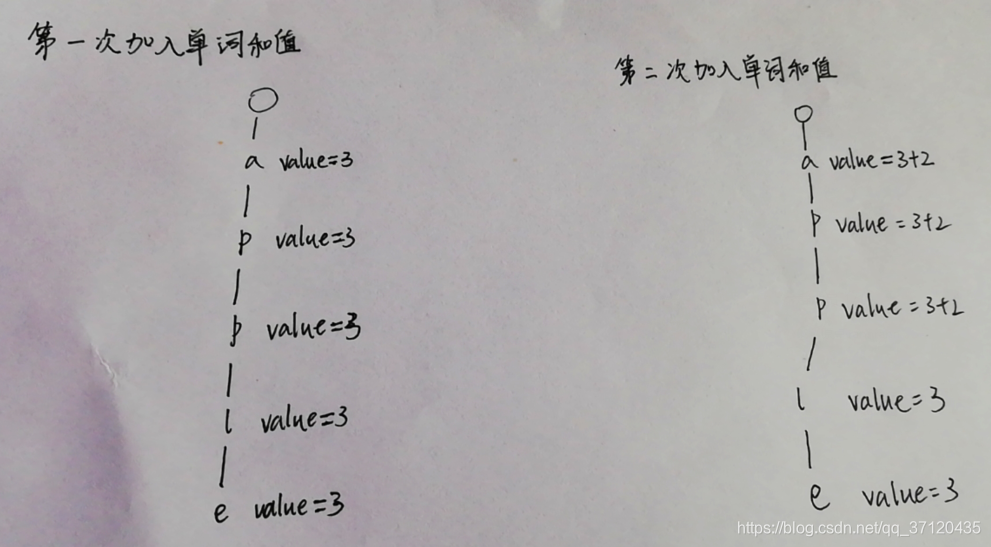 第一次加入单词和值
a value=3
p value=3
p value=3
l value=3
e value=3
第二次加入单词和值
a value=3+2
p value=3+2
p value=3+2
l value=3
e value=3
https://blog.csdn.net/qq_37120435